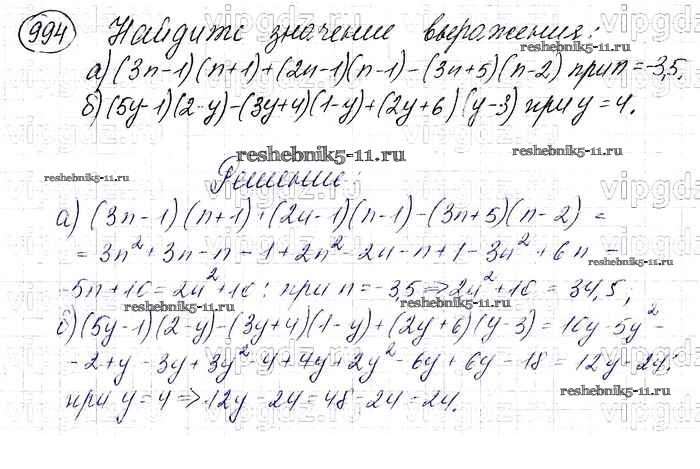 994 Найдите значение выражения:
а) (3n-1)(n+1)+(2n-1)(n-1)-(3n+5)(n-2) при n=-3,5,
б) (5y-1)(2-y)-(3y+4)(1-y)+(2y+6)(y-3) при y=4.
reshebnik5-11.ru
reshebnik5-11.ru
Решение:
reshebnik5-11.ru
а) (3n-1)(n+1)+(2n-1)(n-1)-(3n+5)(n-2) =
= 3n²+3n-n-1+2n²-2n-n+1-3n²+6n-
reshebnik5-11.ru
-5n+10=2n²+10; при n=-3,5 => 2n²+10 = 34,5;
reshebnik5-11.ru
б) (5y-1)(2-y)-(3y+4)(1-y)+(2y+6)(y-3) = 10y-5y²-
-2+y-3y+3y²-4+4y+2y²-6y+6y-18 = 12y-24;
reshebnik5-11.ru
при y=4 => 12y-24=48-24=24.
reshebnik5-11.ru